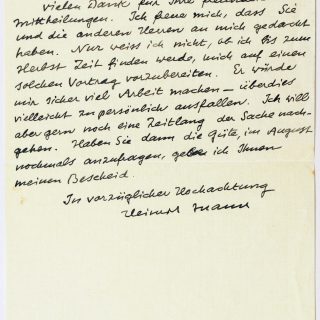 vielen Dank für Ihre freundlichen
Mittheilungen. Ich freue mich, dass Sie
und die anderen Herren an mich gedacht
haben. Nur weiss ich nicht, ob ich bis zum
Herbst Zeit finden werde, mich auf einen
solchen Vortrag vorzubereiten. Er würde
mir sicher viel Arbeit machen – überdies
vielleicht zu persönlich ausfallen. Ich will
aber gern noch eine Zeitlang der Sache nach-
gehen. Haben Sie dann die Güte, im August
nochmals anzufragen, gebe ich Ihnen
meinen Bescheid.
In vorzüglicher Hochachtung
Heinrich Mann